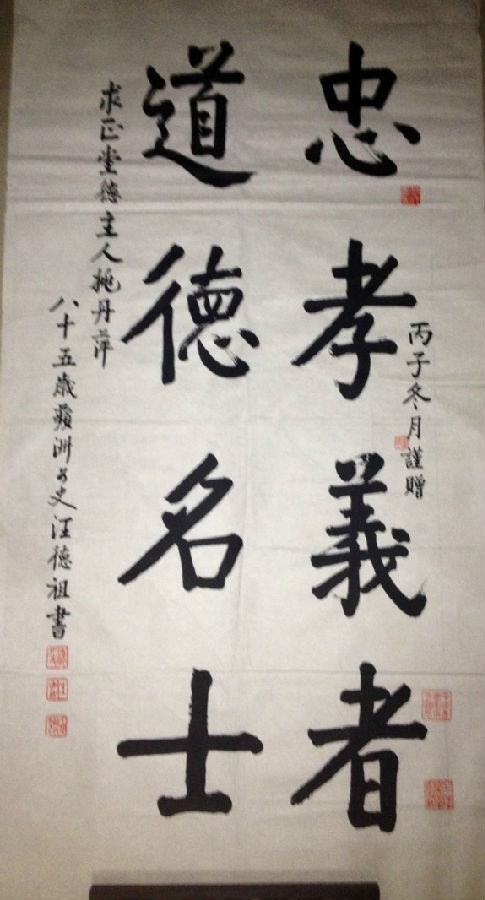 忠孝義者
道德名士
丙子冬月謹贈
求正堂德主人 丹萍
八十五歲蘋洲 史汪德祖書